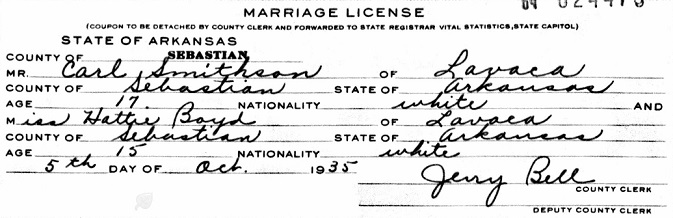 MARRIAGE LICENSE
(COUPON TO BE DETACHED BY COUNTY CLERK AND FORWARDED TO STATE REGISTRAR VITAL STATISTICS, STATE CAPITOL)
STATE OF ARKANSAS
COUNTY OF SEBASTIAN
MR. Carl Smithson OF Lavaca
COUNTY OF Sebastian STATE OF Arkansas
AGE 17. NATIONALITY white AND
Miss Hattie Boyd OF Lavaca
COUNTY OF Sebastian STATE OF Arkansas
AGE 15 NATIONALITY white
5th DAY OF Oct. 1935
Jerry Bell
COUNTY CLERK
DEPUTY COUNTY CLERK